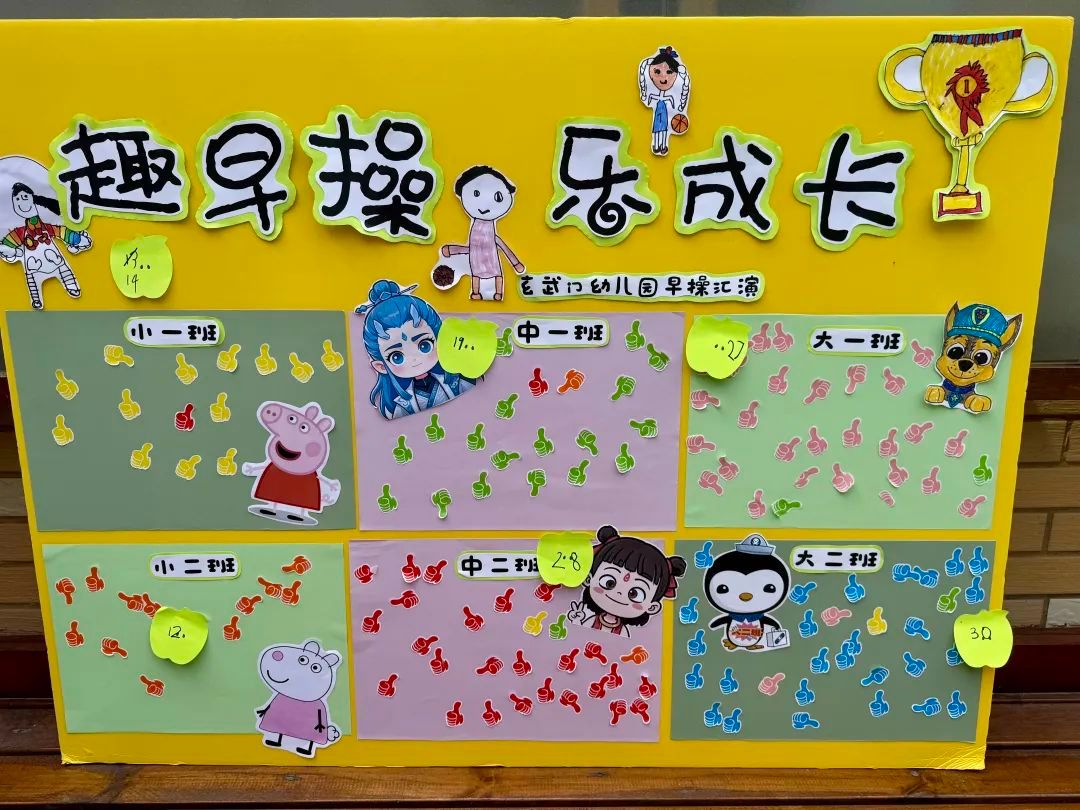 趣早操 乐成长
1
玄武门幼儿园早操汇演
14
小一班
19..
中一班
..27
大一班
小二班
12.
中二班
28
大二班
大二班
30